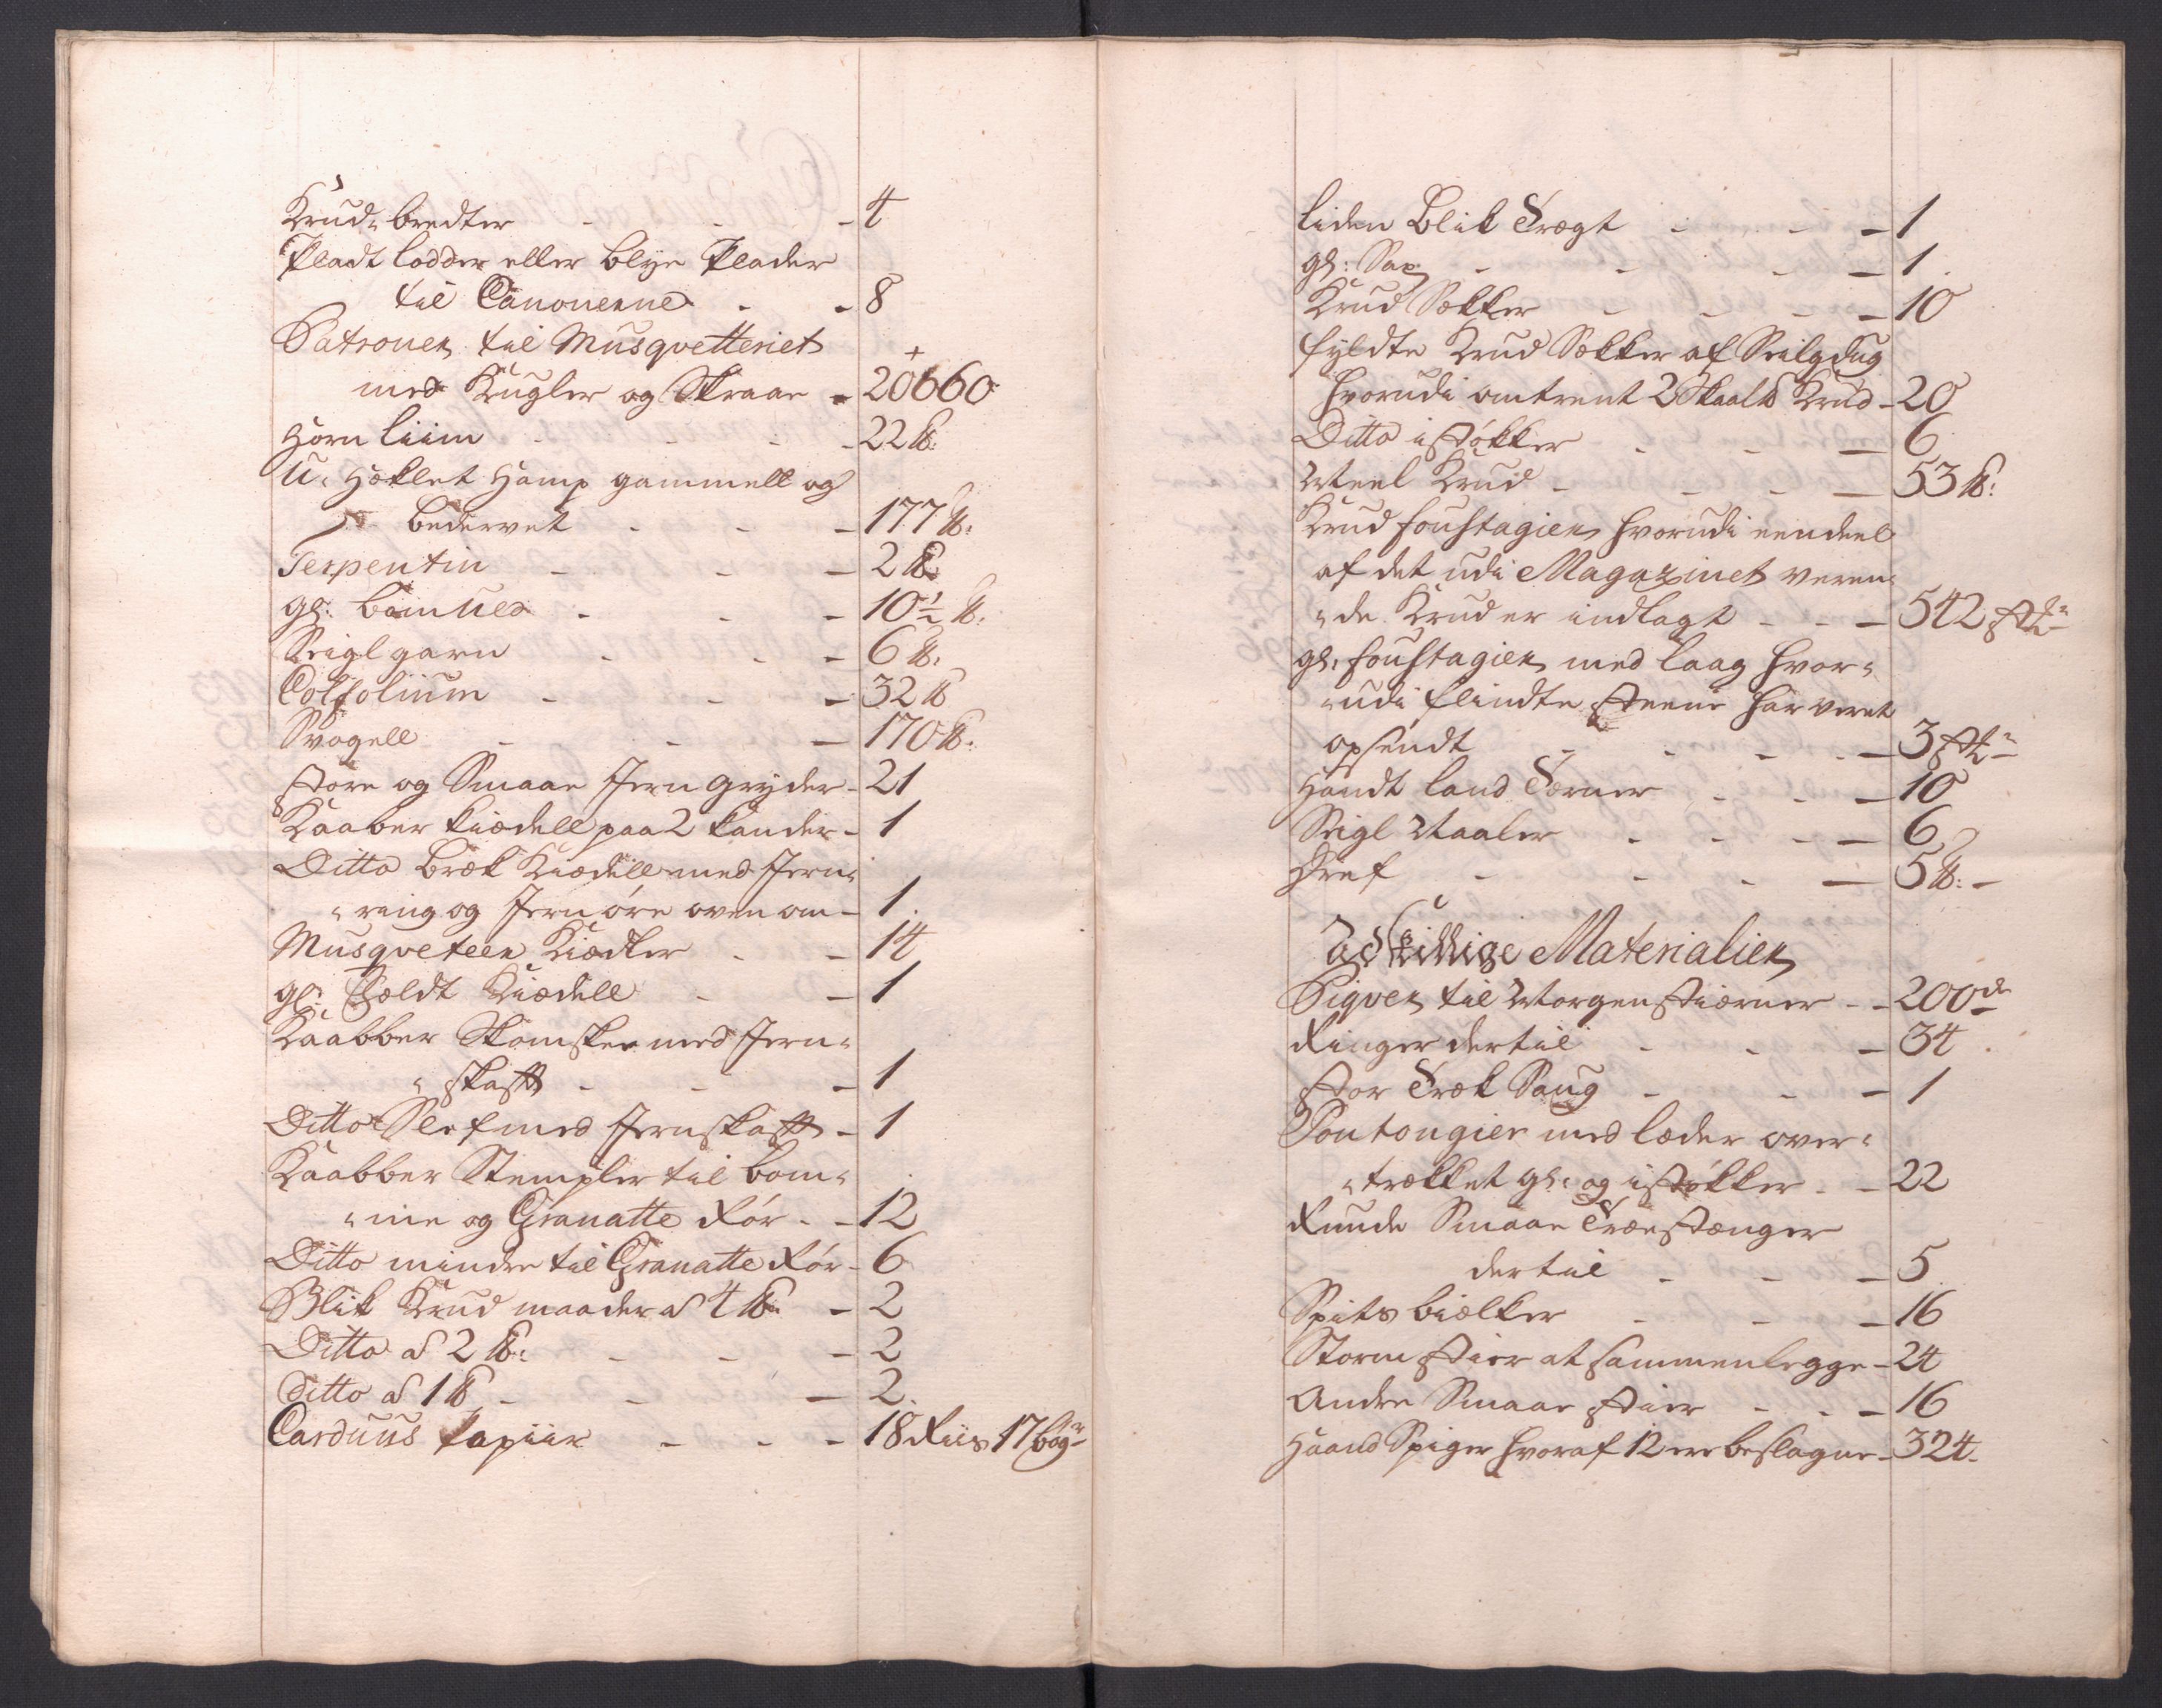 Krud, bredter - - - 4
Pladt lodder eller Blye Plader
til Canonerne - - 8
Patroner til Musqvetteriet
med Kugler og Skraae - 20660
Horn Liim - - - 22 ℔:
U, Heklet Hamp gammell og
bedervet - - - 177 ℔:
Terpentin - - - 2 ℔
gl: Bomuld - - - 10½ ℔:
Seigl garn - - - 6 ℔:
Colfolium - - - 32 ℔
Svogell - - - 170 ℔:
Store og Smaae Jern gryder - 21
Kaaber Kiædell paa 2 Kander - 1
Ditto Bræk Kiædell med Jern,
, ring og Jern øre oven om - 1
Musqveteer Kiædler - - 14
gl: Kiædell - - 1
Kaabber Skomskee med Jern,
, skafft - - - 1
Ditto Slef med Jernskafft - 1
Kaabber Stempler til Bom,
, me og Granatte Rør - - 12
Ditto mindre til Granatte Rør - 6
Blik Krud maader a 4 ℔: - 2
Ditto a 2 ℔: - - - 2
Ditto a 1 ℔ - - - 2
Carduus Papiir - - - 18 Riis 17 bogr
Liden Blik Tragt - - - 1
gl: Sax - - - 1
Krud Sekker - - - 10
fyldte Krud Sekker af Seilgdug
hvorudi omtrent 2 Skaal℔ Krud - 20
Ditto i støkker - - - 6
Meel Krud - - - 53 ℔:
Krud foustagier hvorudi eendeel
af det udi Magazinet veren,
, de Krud er indlagt - - - 542 stk
gl: foustagier med laag hvor,
, udi flindte Steene har veret
opsendt - - - 3 stk
Handt land - - - 10
Seigl Naaler - - - 6
Dref - - - 5 ℔: -
Adskillige Materialier
Piqver til Morgenstierner - - 200 de
Ringer dertil - - - 34
Stor Træk Saug - - - 1
Pontongier med læder over,
, trekket gl: og i støkker - - 22
Runde Smaae Træe stænger
dertil - - - 5
Spits bielker - - - 16
Storm Stier at sammenlegge - 24
Andre Smaae Stier - - - 16
Haand Spiger hvoraf 12 ere beslagne - 324